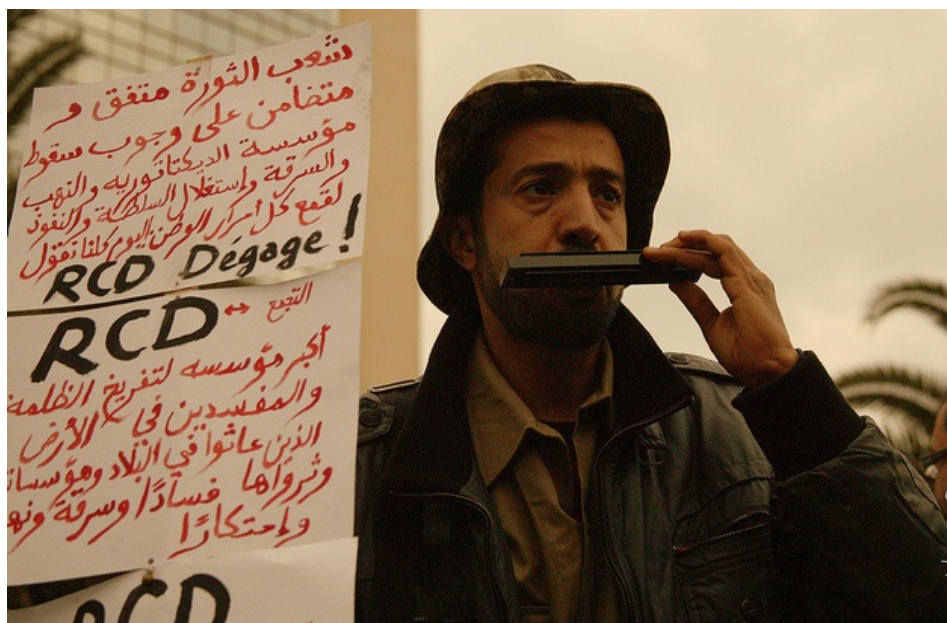 شعب الثورة متفق و
متضامن على وجوب سقوط
مؤسسة الديكتاتوريه والنهب
والسرقة وإستغلال السلطة والنفوذ
لقمع كل أحرار الوطن اليوم كلنا نقول
RCD Dégage !
RCD ↔ التجمع
أكبر مؤسسه لتفريخ الظلمة
والمفسدين في الأرض
الذين عاثوا في البلاد ومؤسسات
وثرواها فسادًا وسرقة ونه
وإحتكارًا
RCD